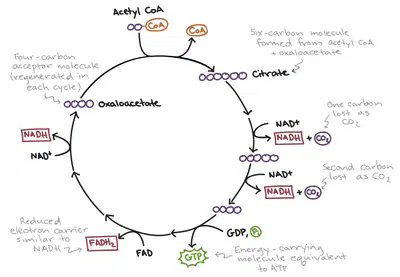 Acetyl CoA
CoA
CoA
Six-carbon molecule
formed from acetyl CoA
+ oxaloacetate
Citrate
Four-carbon
acceptor molecule
(regenerated in
each cycle)
Oxaloacetate
One carbon
lost as
CO₂
NAD+
NADH + CO₂
Second carbon
lost as CO₂
NAD+
NADH + CO₂
GDP, Pi
GTP
Energy-carrying
molecule equivalent
to ATP
FAD
FADH₂
Reduced
electron carrier
similar to
NADH
NAD+
NADH